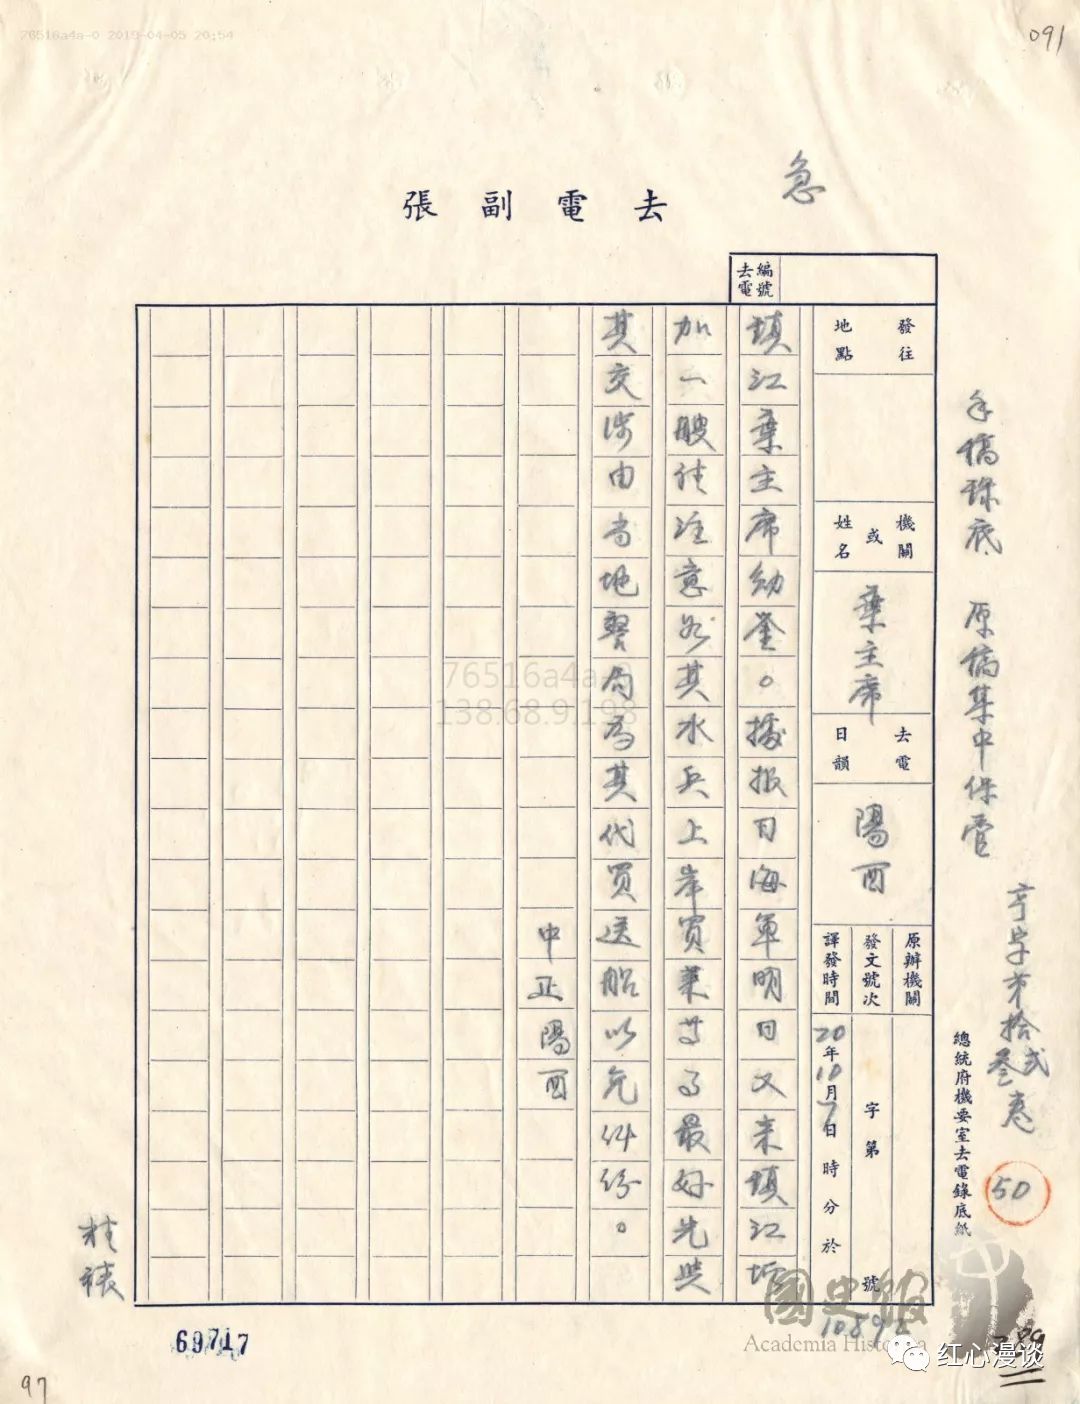 76516a4a-0 2019-04-05 20:54
091
急
去電副張
去電編號
發往地點
機關或姓名
葉主席
去電日韻
陽酉
原辦機關
發文號次
字第號
譯發時間
20年10月7日時分於
鎮江葉主席勛鑒。據報日海軍明日又來鎮江
加一艘佳注意於其水兵上岸買菜等事最好先與
其交涉由當地警局為其代買送船以免糾紛。
中正陽酉
手稿錄底 原稿集中保管
亨字第拾弍叁卷
50
總統府機要室去電錄底紙
76516a4a-0
138.68.9.198
69717
97
國史館
Academia Historica
红心漫谈